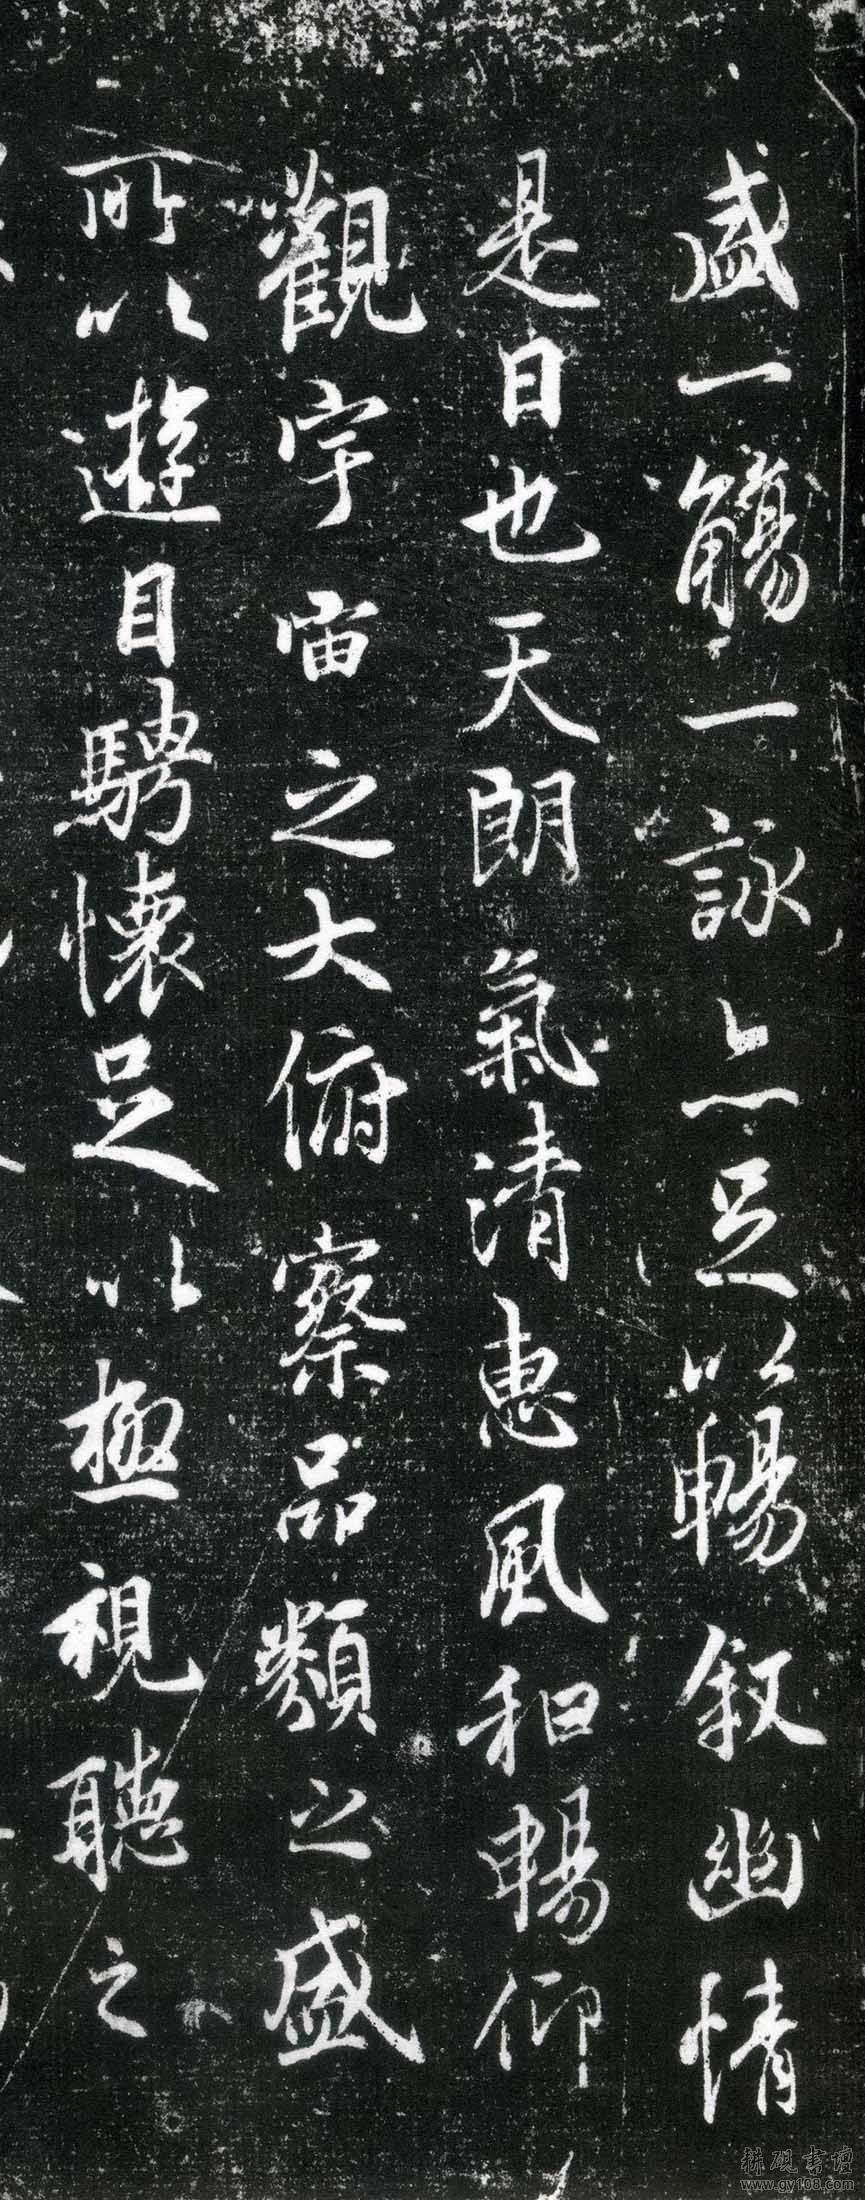 盛一觴一詠亦足以暢敘幽情
是日也天朗氣清惠風和暢仰
觀宇宙之大俯察品類之盛
所以遊目騁懷足以極視聽之
耕硯書壇
www.gy108.com